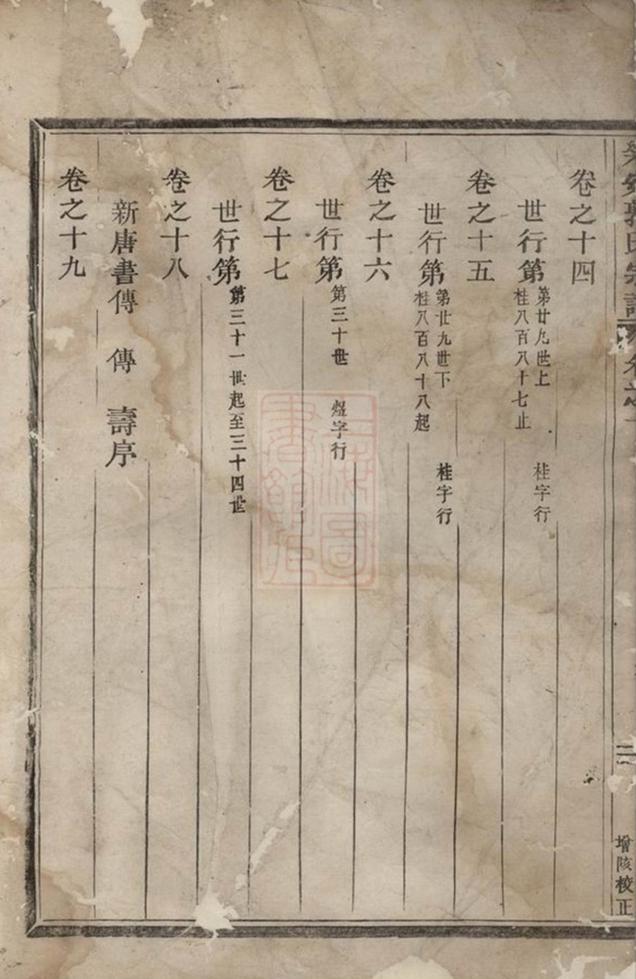 卷之十四
世行第 第廿九世上 桂字行
桂八百八十七止
卷之十五
世行第 第廿九世下 桂字行
桂八百八十八起
卷之十六
世行第 第三十世 煜字行
卷之十七
世行第 第三十一世起至三十四世
卷之十八
新唐書傳 傳 壽序
卷之十九
校正